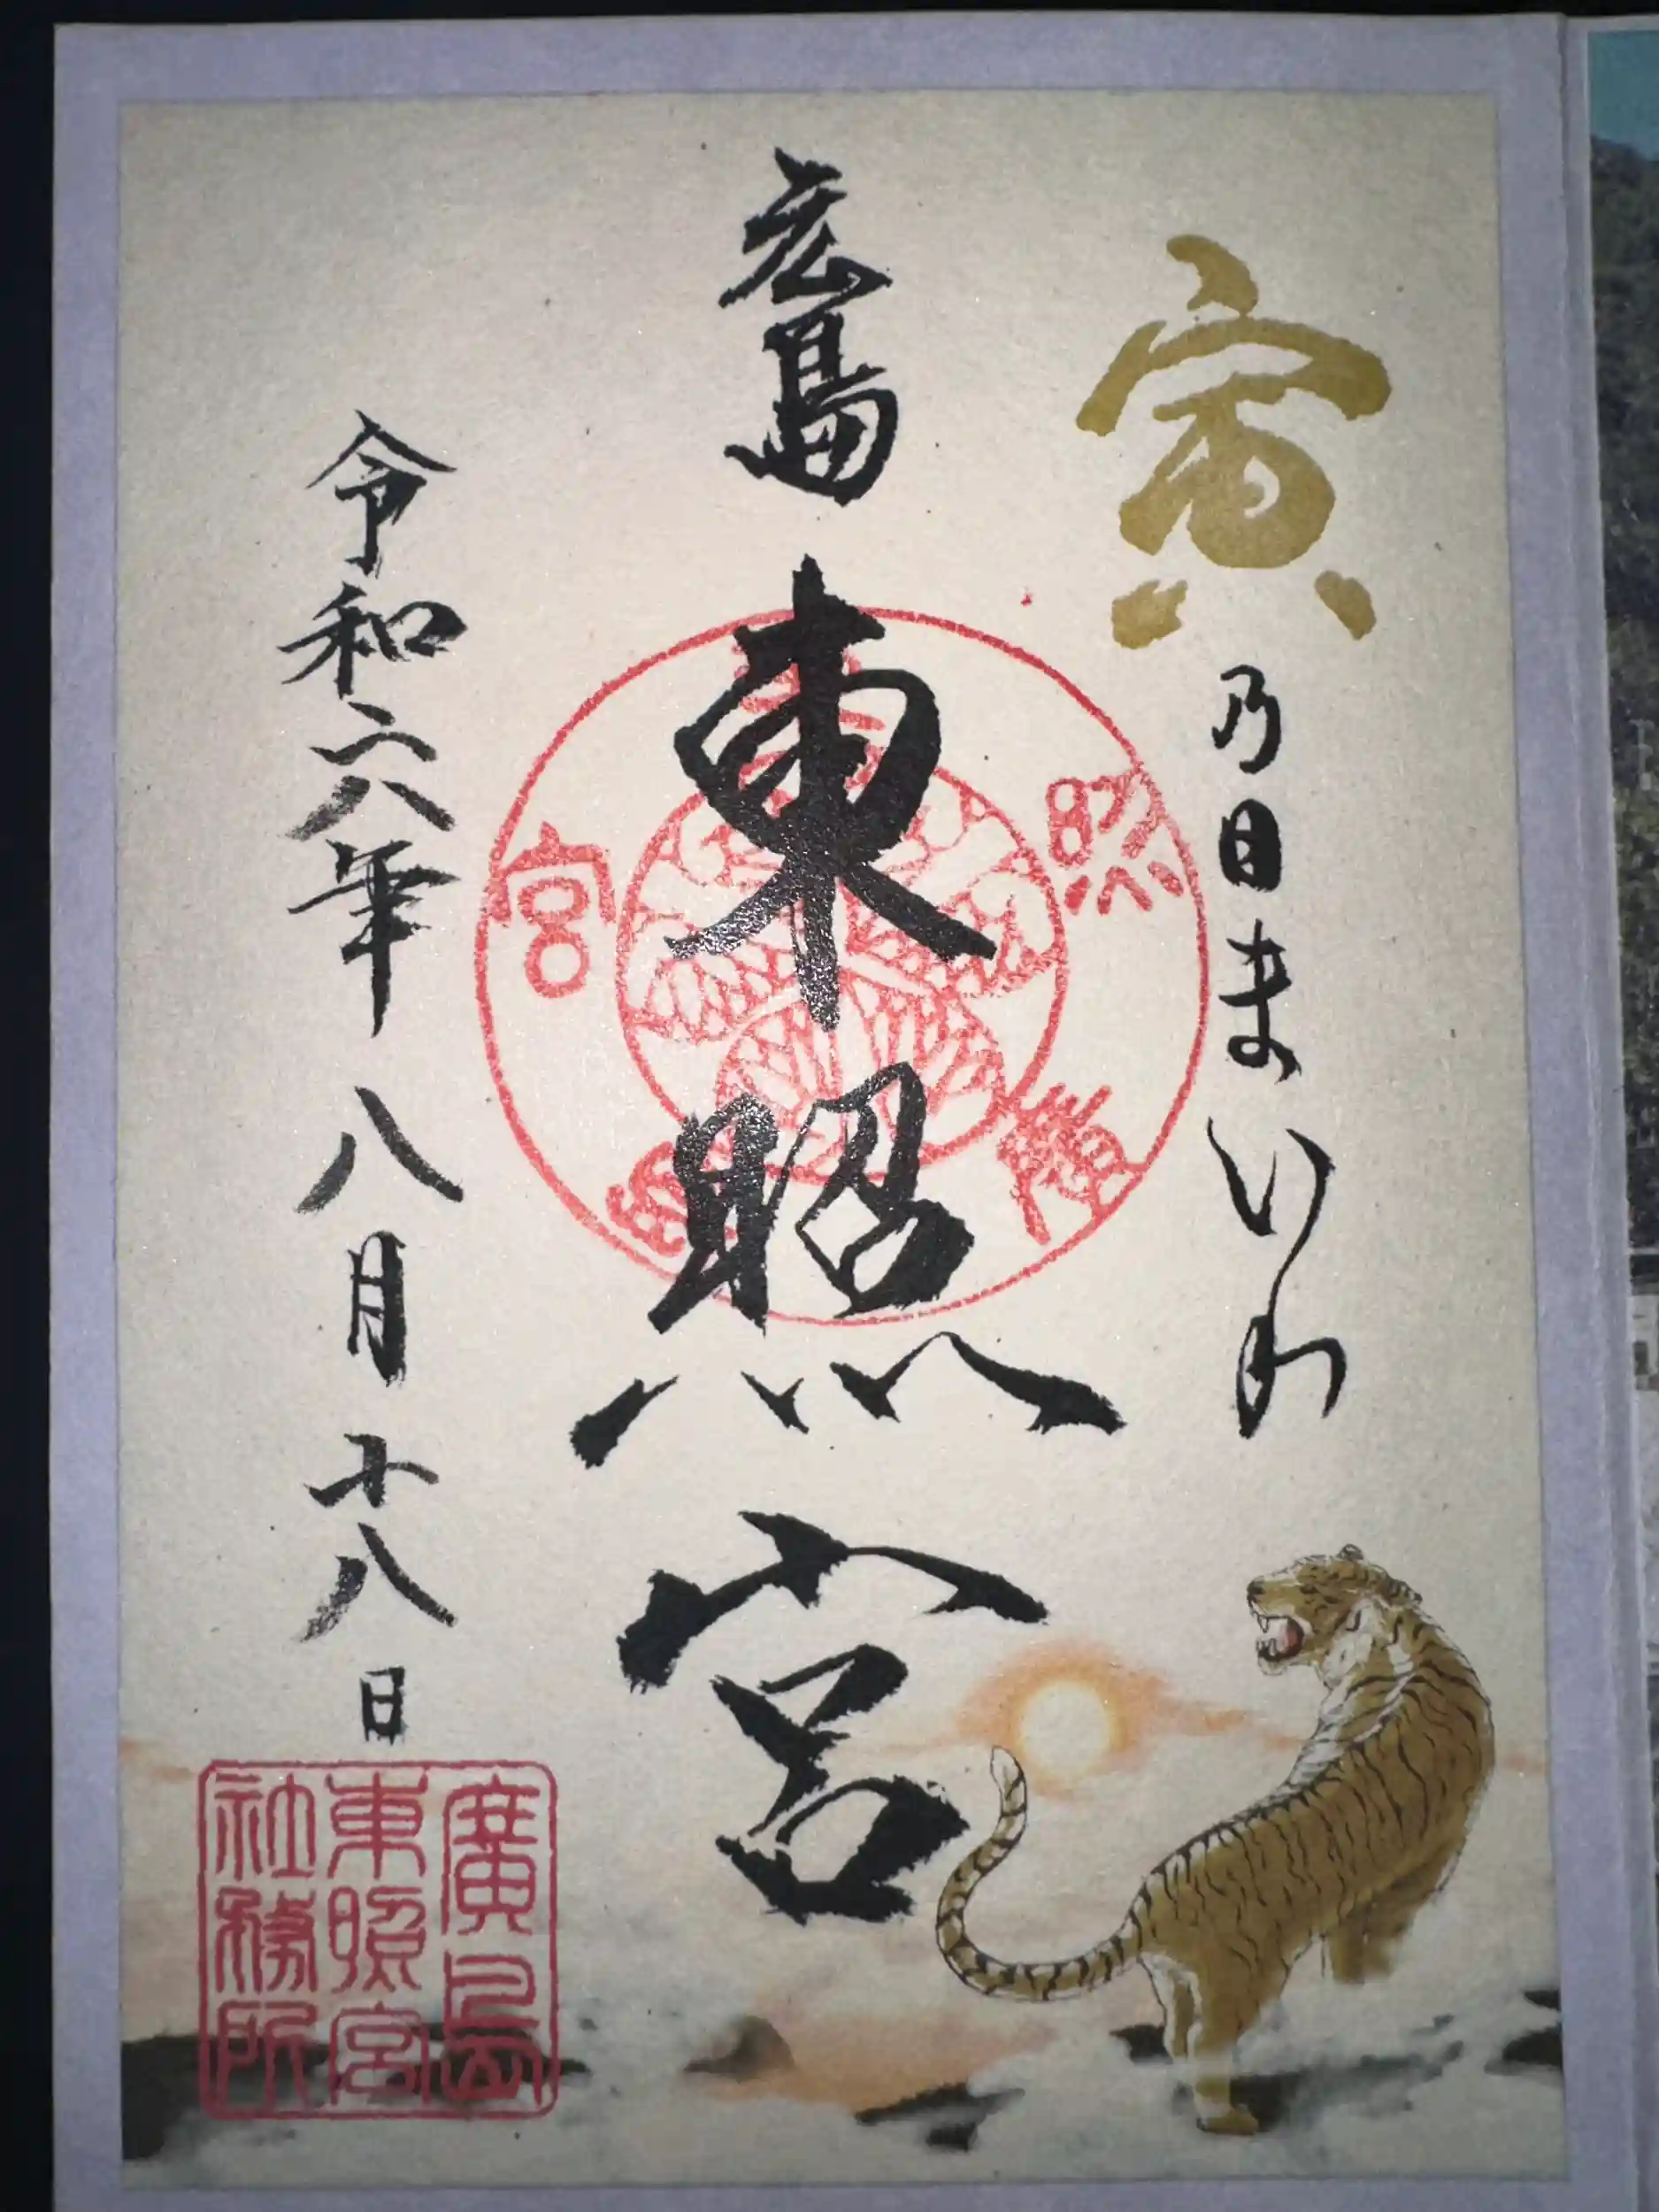 寅乃日まいり
広島東照宮
令和六年八月十八日
廣島
東照宮
廣島
東照宮
社務所